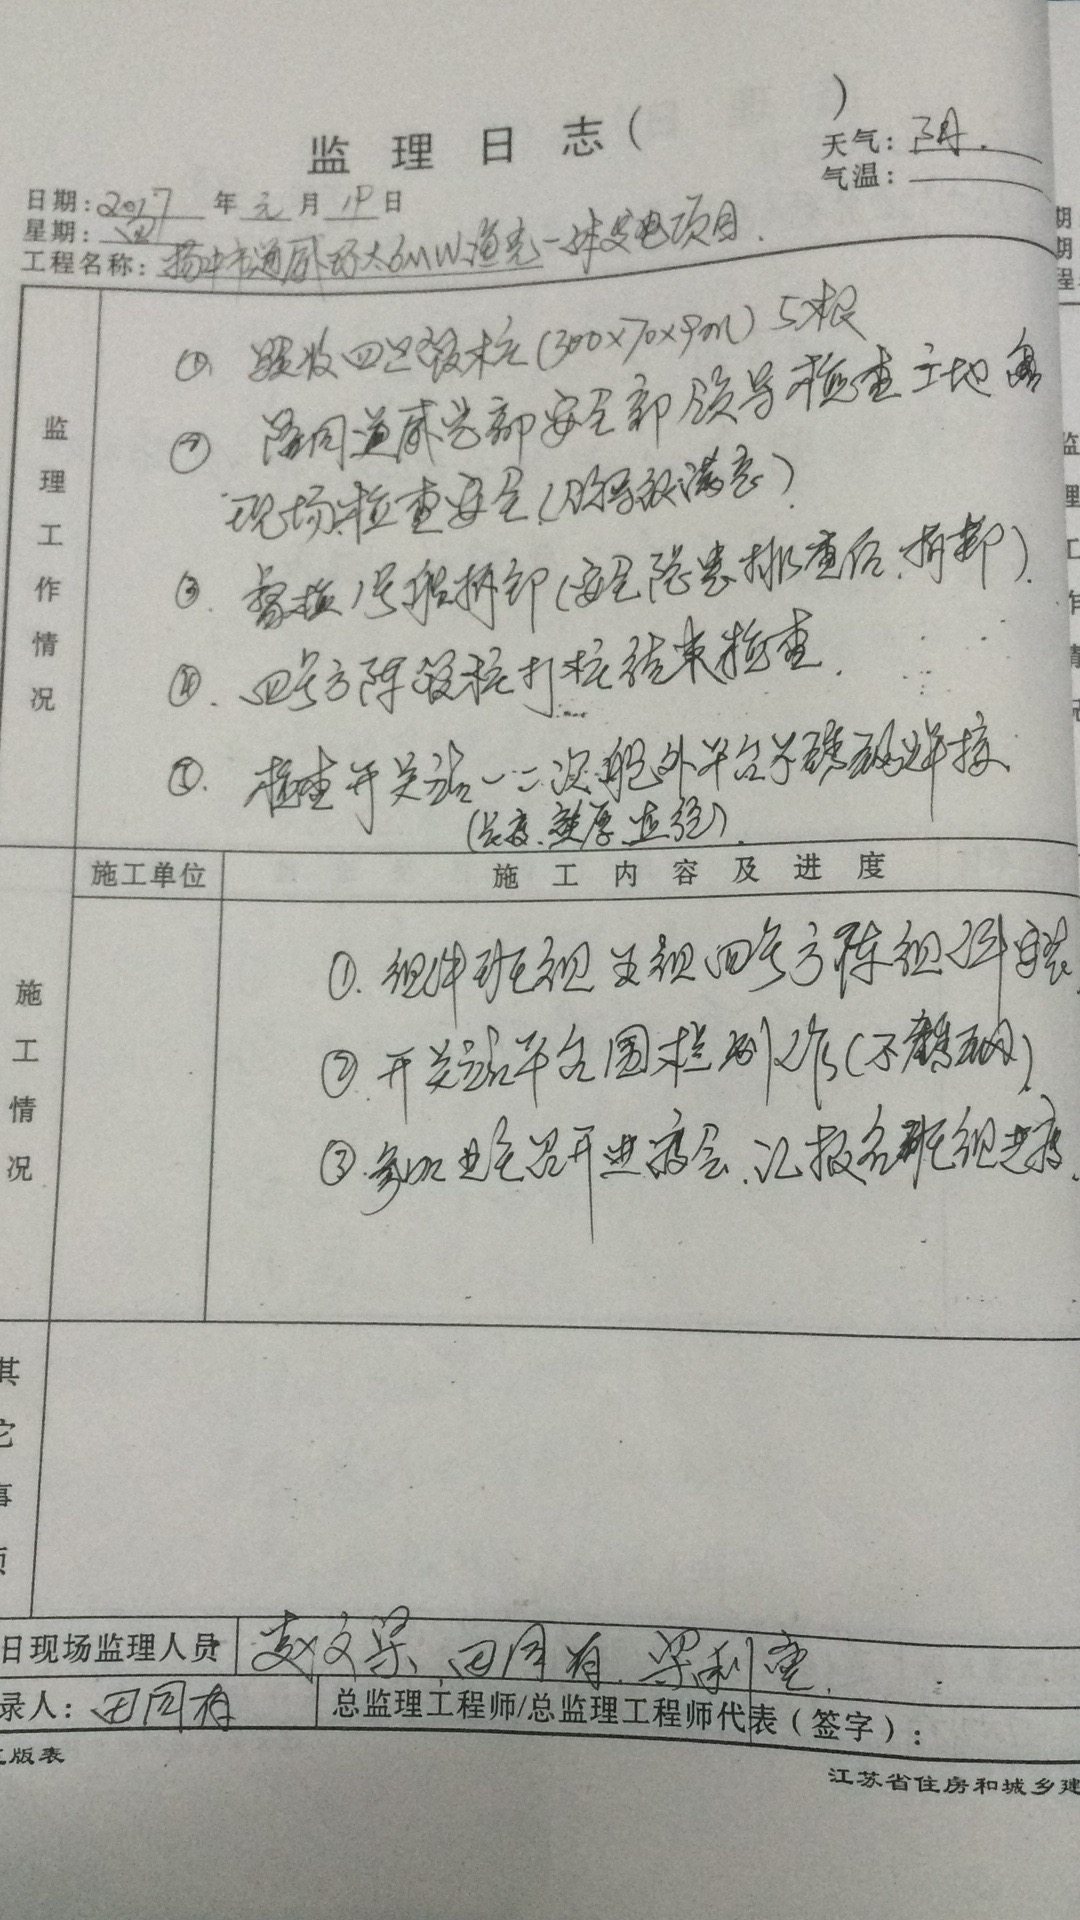 监理日志( )
天气: 阴.
气温:
日期: 2017 年 元 月 19 日
星期: 四
工程名称: 扬中市通威 6MW渔光一体发电项目.
监理工作情况
① 验收四 桩(300×70×9m) 5根
② 陪同通威总部安全部领导检查工地
现场.检查安全( 满意)
③. 1号 拆卸(安全隐患排查后.拆卸).
④. 四号方阵 桩打桩结束检查.
⑤. 检查开关站一二次舱外平台不锈钢焊接
(长度. 厚. 直径).
施工单位
施工内容及进度
施工情况
①. 组件班组 四号方阵组件安装
② 开关站平台围栏制作(不锈钢).
③. 参加业主召开进度会.汇报各班组进度.
其它事项
日现场监理人员
赵文梁. 田同有.
录人: 田同有
总监理工程师/总监理工程师代表(签字):
版表
江苏省住房和城乡建